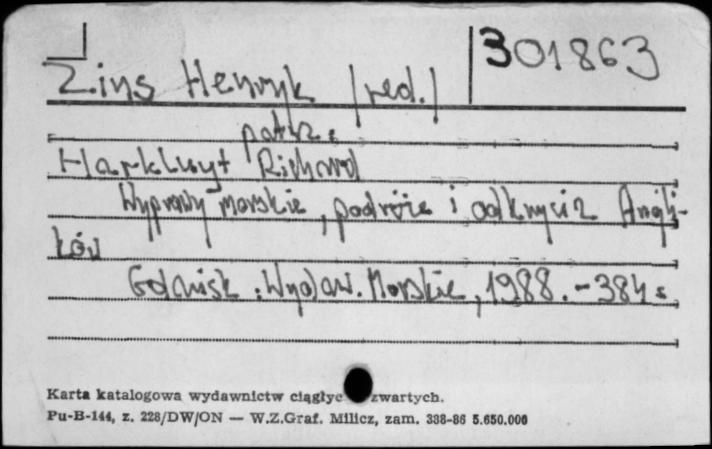 301863
Zins Henryk /red./
patrz:
Harkluyt Richard
Wyprawy morskie, podróże i odkrycia Angli-
ków
Gdańsk: Wydaw. Morskie, 1988. - 384 s
Karta katalogowa wydawnictw ciągłyc zwartych.
Pu-B-144, z. 228/DW/ON — W.Z.Graf. Milicz, zam. 338-86 5.650.000